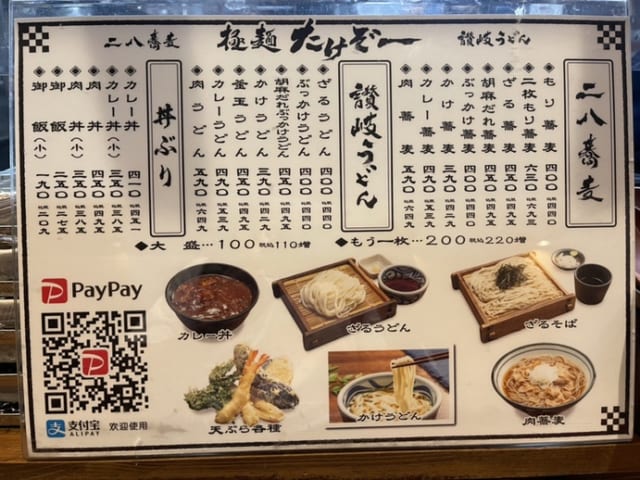 二八蕎麦 極麺 たけぞー 讃岐うどん
二八蕎麦
◆もり蕎麦 四〇〇 四四〇
◆二枚もり蕎麦 六三〇 六九三
◆ざる蕎麦 四五〇 四九五
◆胡麻だれ蕎麦 四五〇 四九五
◆ぶっかけ蕎麦 四〇〇 四四〇
◆かけ蕎麦 三九〇 四二九
◆カレー蕎麦 四九〇 五三九
◆肉蕎麦 五九〇 六四九
讃岐うどん
◆ざるうどん 四〇〇 四四〇
◆ぶっかけうどん 四〇〇 四四〇
◆胡麻だれぶっかけうどん 四五〇 四九五
◆かけうどん 三九〇 四二九
◆釜玉うどん 四五〇 四九五
◆カレーうどん 四九〇 五三九
◆肉うどん 五九〇 六四九
丼ぶり
◆カレー丼 四一〇 四五一
◆カレー丼(小) 三五〇 三八五
◆肉丼 四五〇 四九五
◆肉丼(小) 三五〇 三八五
◆御飯 二五〇 二七五
◆御飯(小) 一九〇 二〇九
◆大 盛…100税込110増
◆もう一枚…200税込220増
PayPay
支付宝
ALIPAY
欢迎使用
カレー丼
ざるうどん
ざるそば
天ぷら各種
かけうどん
肉蕎麦